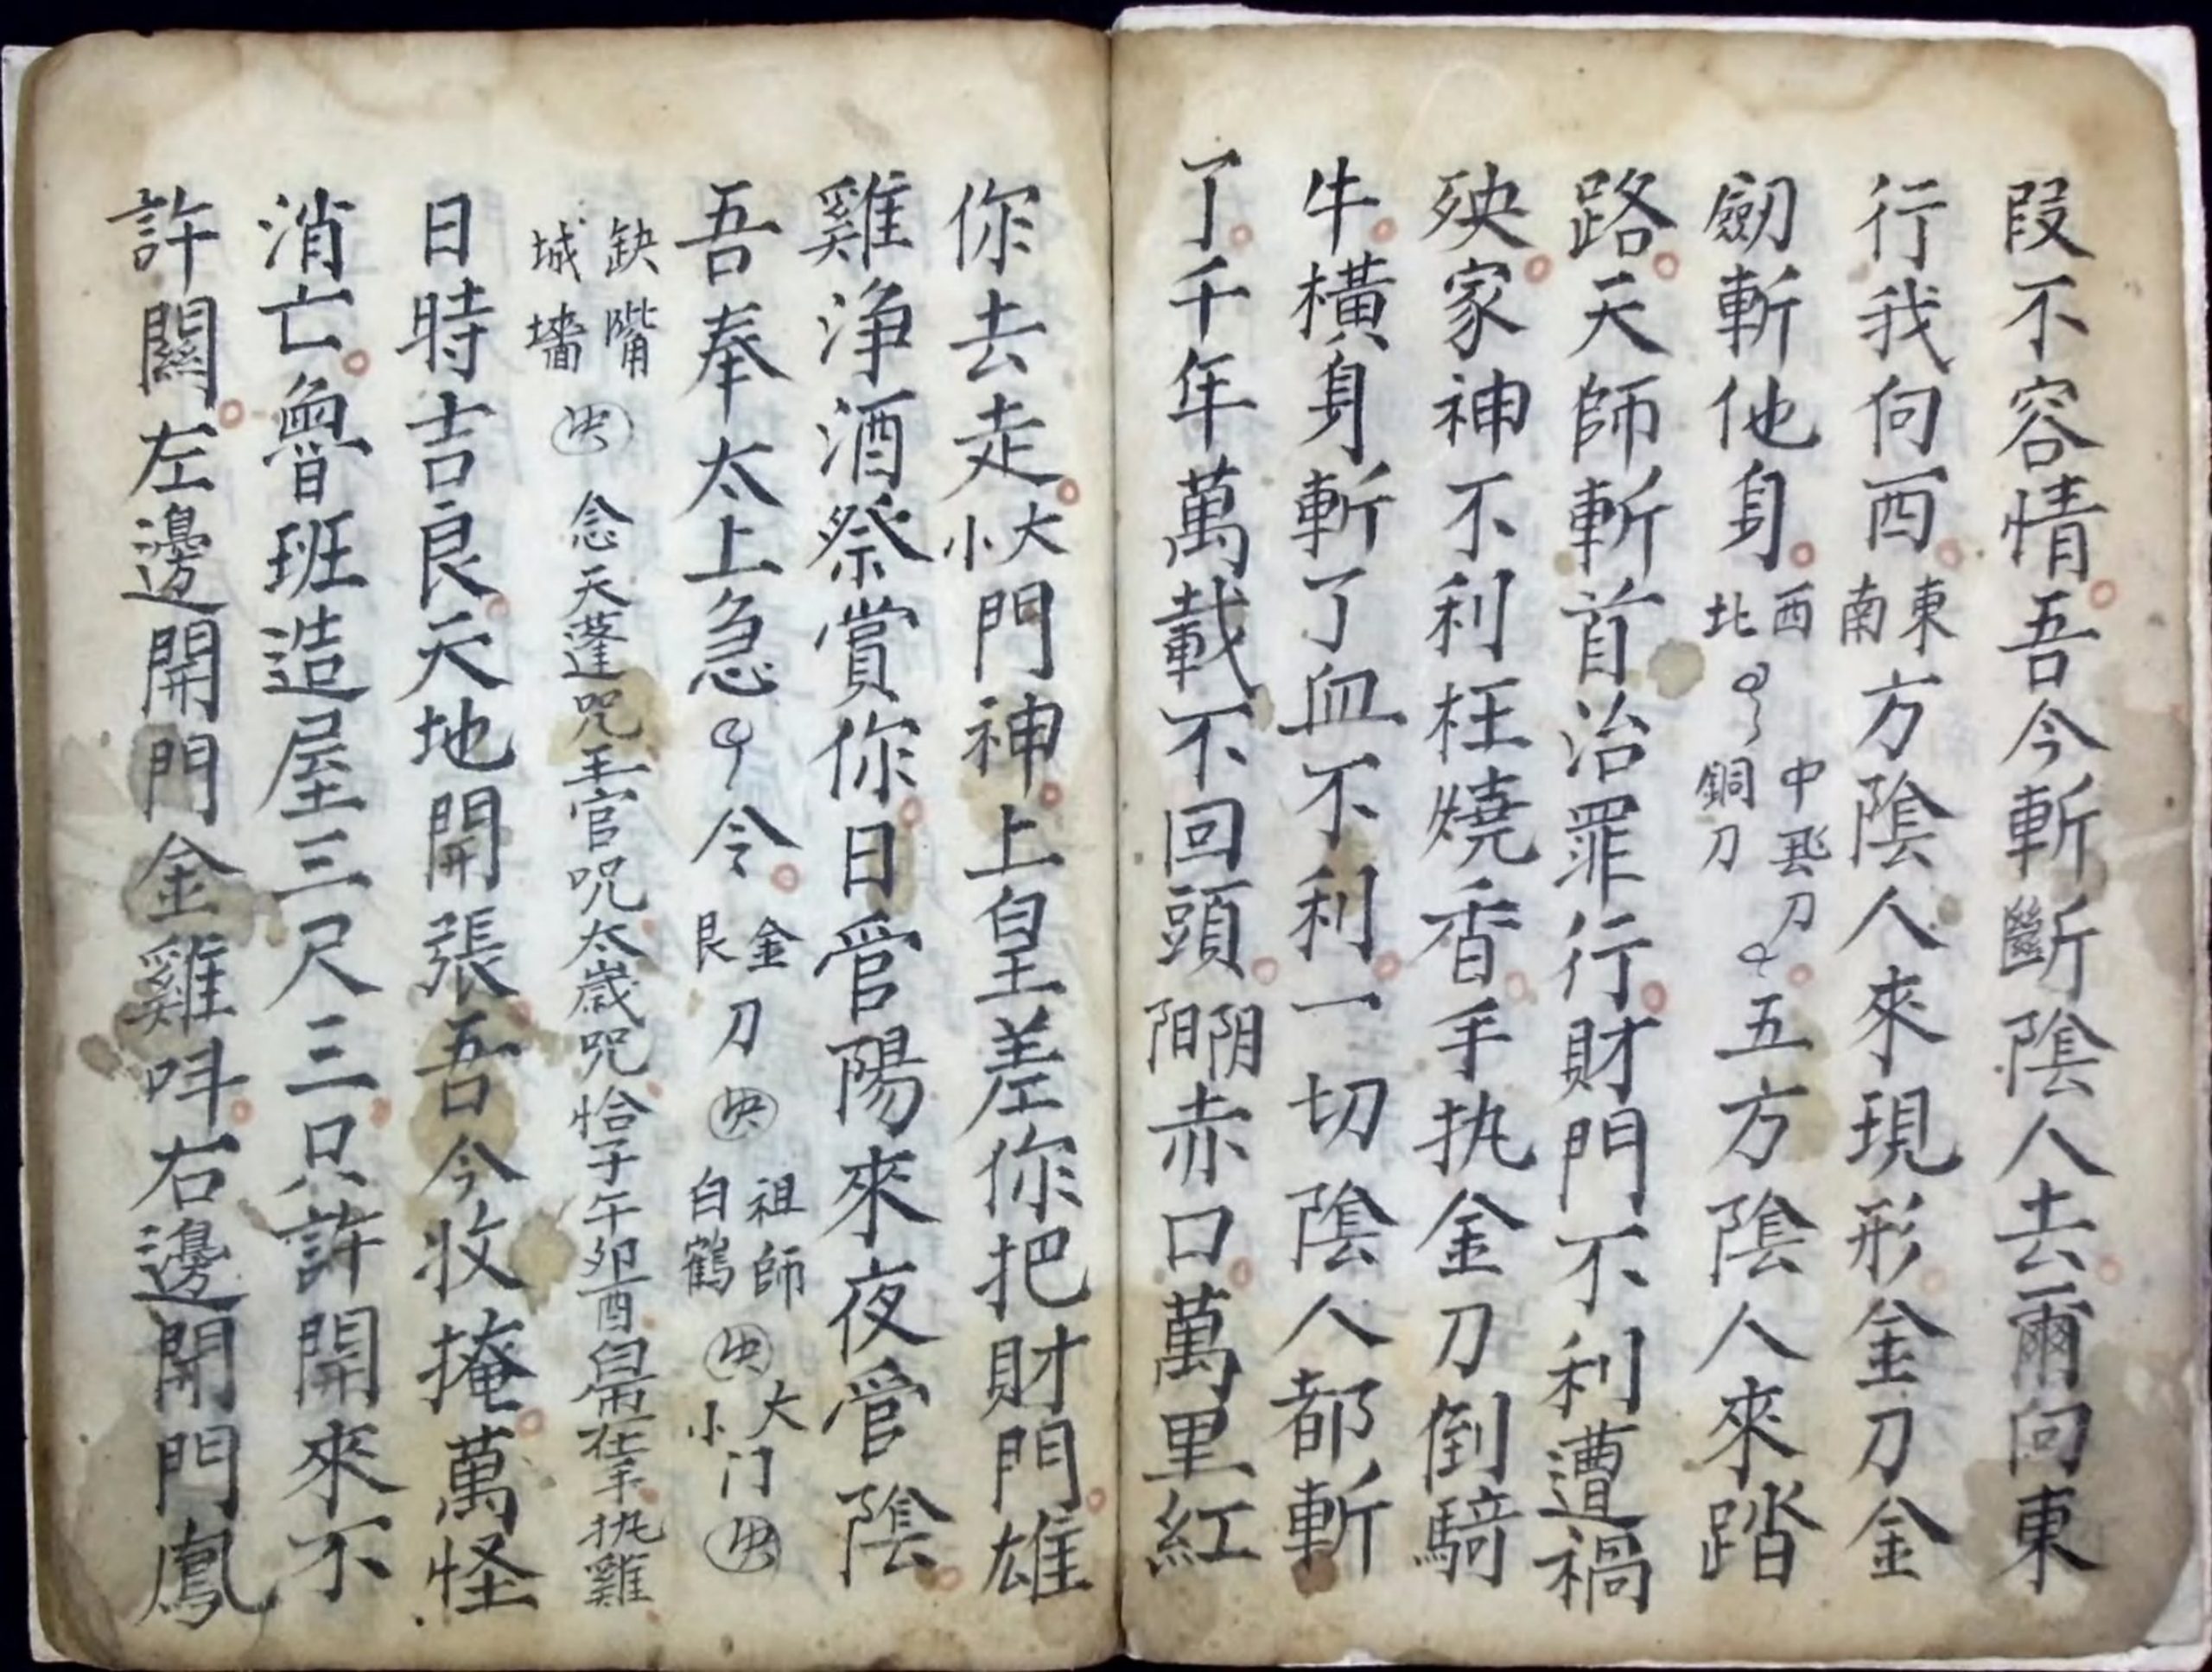 叚不容情吾今斬斷陰人去爾向東
行我向西東南方陰人來現形金刀金
劒斬他身西北中刀銅刀五方陰人來踏
路天師斬首治罪行財門不利遭禍
殃家神不利枉燒香手执金刀倒騎
牛橫身斬了血不利一切陰人都斬
了千年萬載不回頭阴間赤口萬里紅
你去走大小門神上皇差你把財門雄
雞淨酒祭賞你日管陽來夜管陰
吾奉太上急令金艮刀祖師白鶴大小门
缺嘴城墻念天蓬咒王官咒太歲咒恰子午卯酉在手执雞
日時吉良天地開張吾今收掩萬怪
消亡魯班造屋三尺三只許開來不
許關左邊開門金雞呌右邊開門鳳